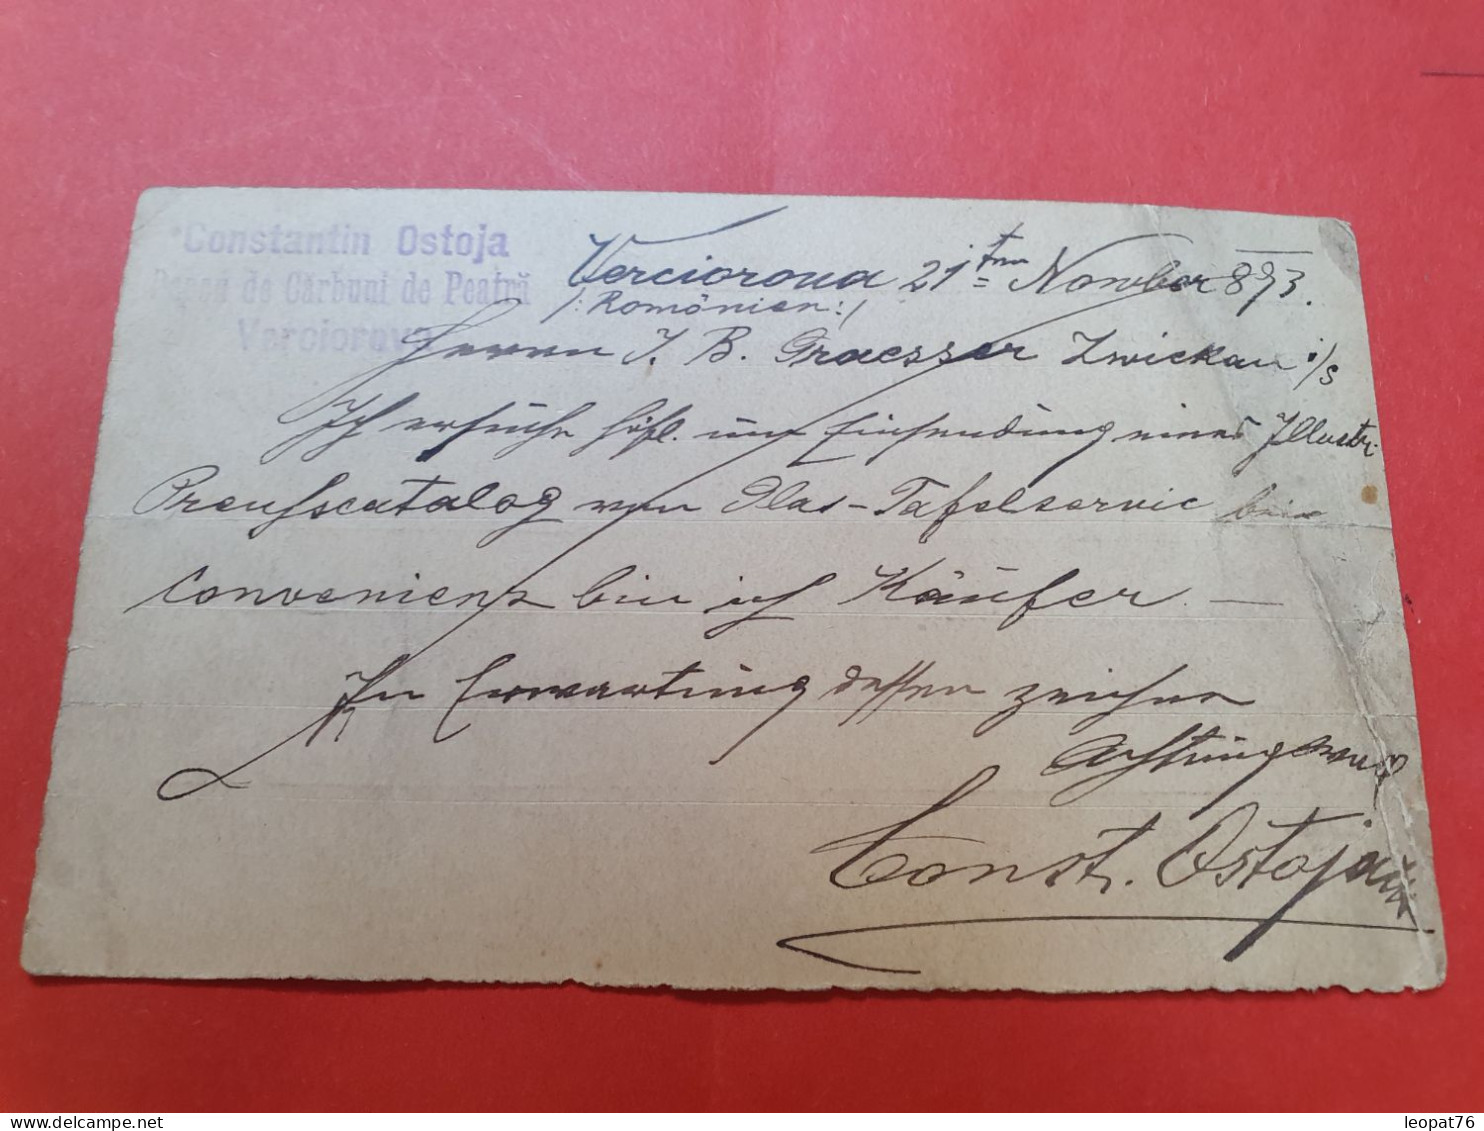 Constantin Ostoja
de Cărbuni de Peatră
Verciorova
Verciorova 21ten November 893.
/: Romänien :/
Herrn J. B. Graesser Zwickau i/S
Ich ersuche höfl. um Einsendung eines Illustr.
Preusscatalog von Glas-Tafelservic bei
Convenienz bin ich Käufer. —
In Erwartung dessen zeichne
Achtungsvoll
Const. Ostoja
leopat76
delcampe.net